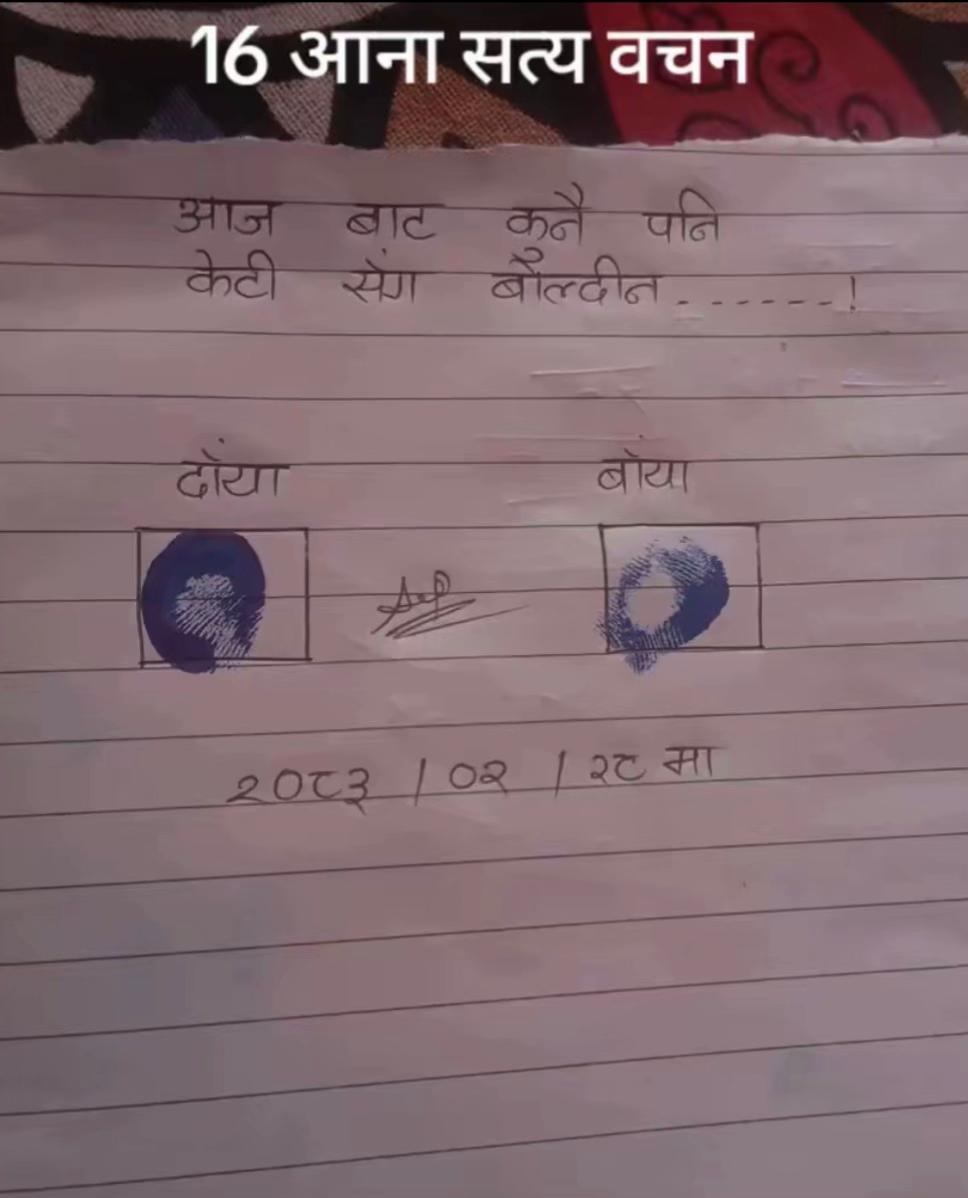 16 आना सत्य वचन
आज बाट कुनै पनि
केटी सँग बोल्दीन.......!
दाँया बाँया
२०८३ / ०२ / २८ मा